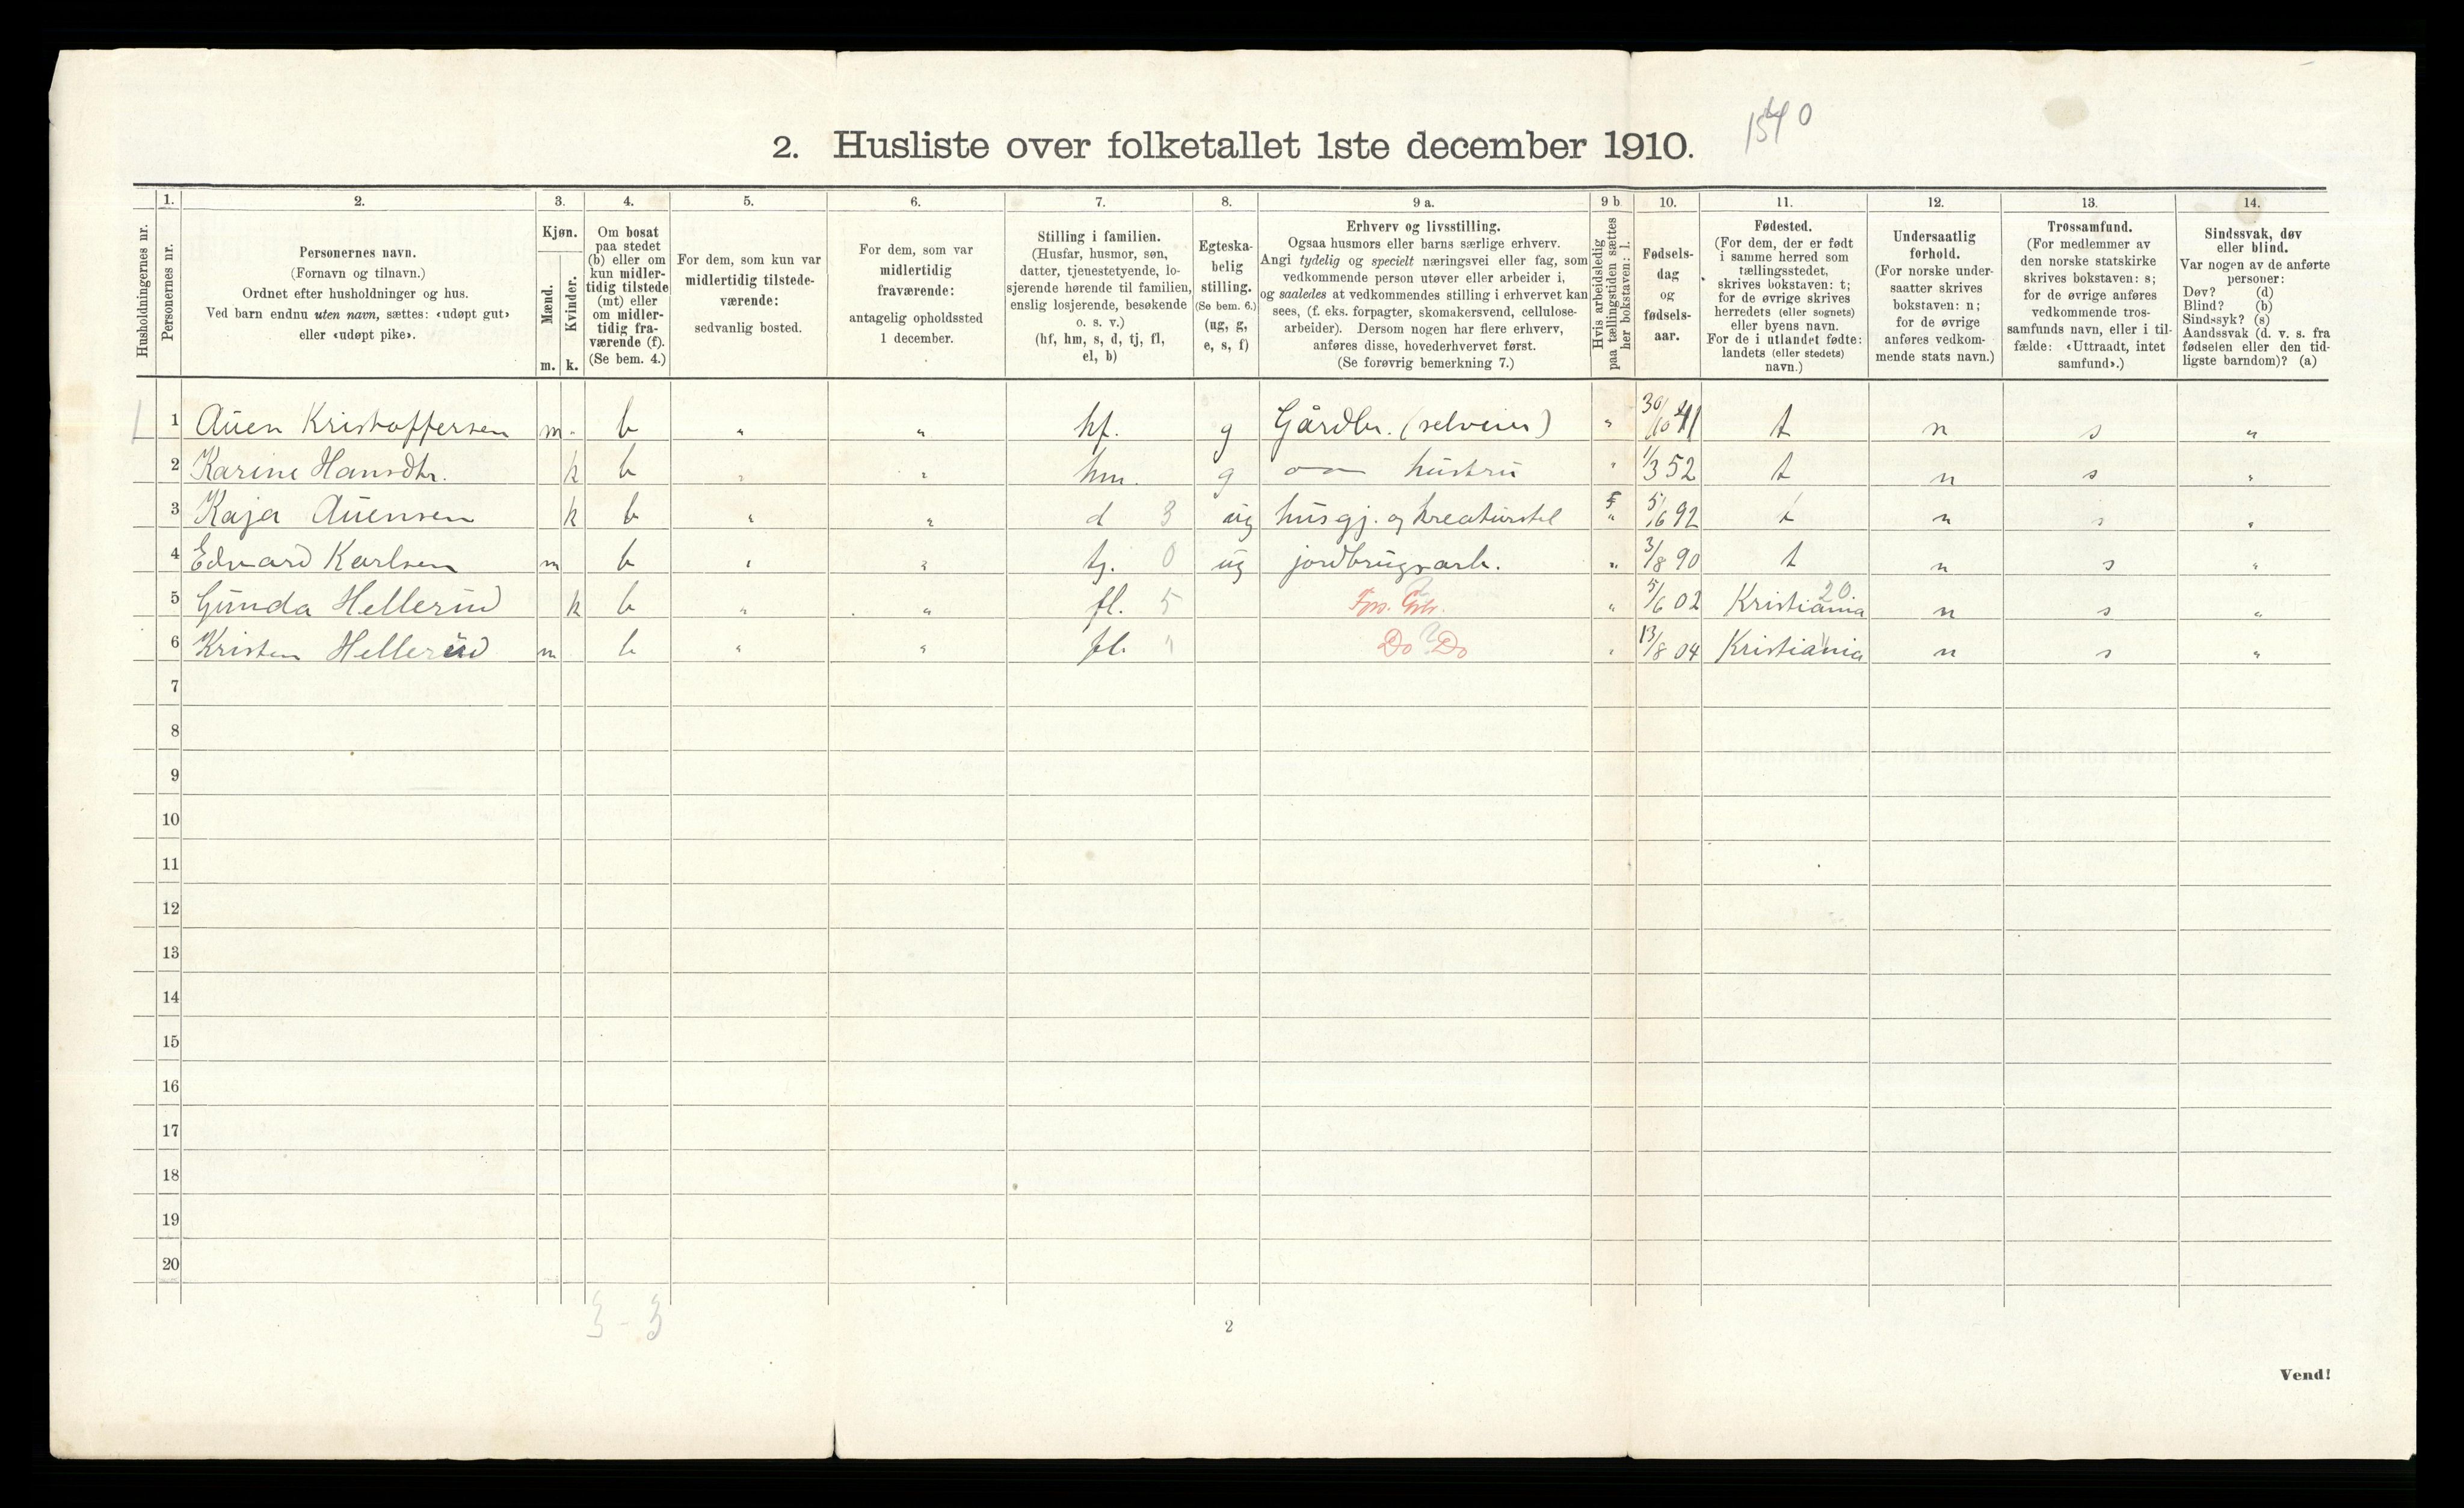 2. Husliste over folketallet 1ste december 1910.
1. 2. 3. 4. 5. 6. 7. 8. 9 a. 9 b 10. 11. 12. 13. 14.
Husholdningernes nr.
Personernes nr.
Personernes navn.
(Fornavn og tilnavn.)
Ordnet efter husholdninger og hus.
Ved barn endnu uten navn, sættes: «udøpt gut»
eller «udøpt pike».
Kjøn.
Mænd.
Kvinder.
m. k.
Om bosat
paa stedet
(b) eller om
kun midler-
tidig tilstede
(mt) eller
om midler-
tidig fra-
værende (f).
(Se bem. 4.)
For dem, som kun var
midlertidig tilstede-
værende:
sedvanlig bosted.
For dem, som var
midlertidig
fraværende:
antagelig opholdssted
1 december.
Stilling i familien.
(Husfar, husmor, søn,
datter, tjenestetyende, lo-
sjerende hørende til familien,
enslig losjerende, besøkende
o. s. v.)
(hf, hm, s, d, tj, fl,
el, b)
Egteska-
belig
stilling.
(Se bem. 6.)
(ug, g,
e, s, f)
Erhverv og livsstilling.
Ogsaa husmors eller barns særlige erhverv.
Angi tydelig og specielt næringsvei eller fag, som
vedkommende person utøver eller arbeider i,
og saaledes at vedkommendes stilling i erhvervet kan
sees, (f. eks. forpagter, skomakersvend, cellulose-
arbeider). Dersom nogen har flere erhverv,
anføres disse, hovederhvervet først.
(Se forøvrig bemerkning 7.)
Hvis arbeidsledig
paa tællingstiden sættes
her bokstaven: l.
Fødsels-
dag
og
fødsels-
aar.
Fødested.
(For dem, der er født
i samme herred som
tællingsstedet,
skrives bokstaven: t;
for de øvrige skrives
herredets (eller sognets)
eller byens navn.
For de i utlandet fødte:
landets (eller stedets)
navn.)
Undersaatlig
forhold.
(For norske under-
saatter skrives
bokstaven: n;
for de øvrige
anføres vedkom-
mende stats navn.)
Trossamfund.
(For medlemmer av
den norske statskirke
skrives bokstaven: s;
for de øvrige anføres
vedkommende tros-
samfunds navn, eller i til-
fælde: «Uttraadt, intet
samfund».)
Sindssvak, døv
eller blind.
Var nogen av de anførte
personer:
Døv? (d)
Blind? (b)
Sindssyk? (s)
Aandssvak (d. v. s. fra
fødselen eller den tid-
ligste barndom)? (a)
1 Auen Kristoffersen m - b " " hf. g Gårdbr. (selveier) " 30/10 41 t n s "
2 Karine Hansdtr. k b " " hm. g hustru " 1/3 52 t n s "
3 Kaja Auensen k b " " d 3 ug husgj. og kreaturstel " 5/6 92 t n s "
4 Edvard Karlsen m b " " tj. 0 ug jordbrugsarb. " 3/8 90 t n s "
5 Gunda Hellerud k b " " fl. 5 " 5/6 02 Kristiania 20 n s "
6 Kristen Hellerud m b " " fl. Do Do " 13/8 04 Kristiania n s "
7
8
9
10
11
12
13
14
15
16
17
18
19
20
3 - 3
2
Vend!